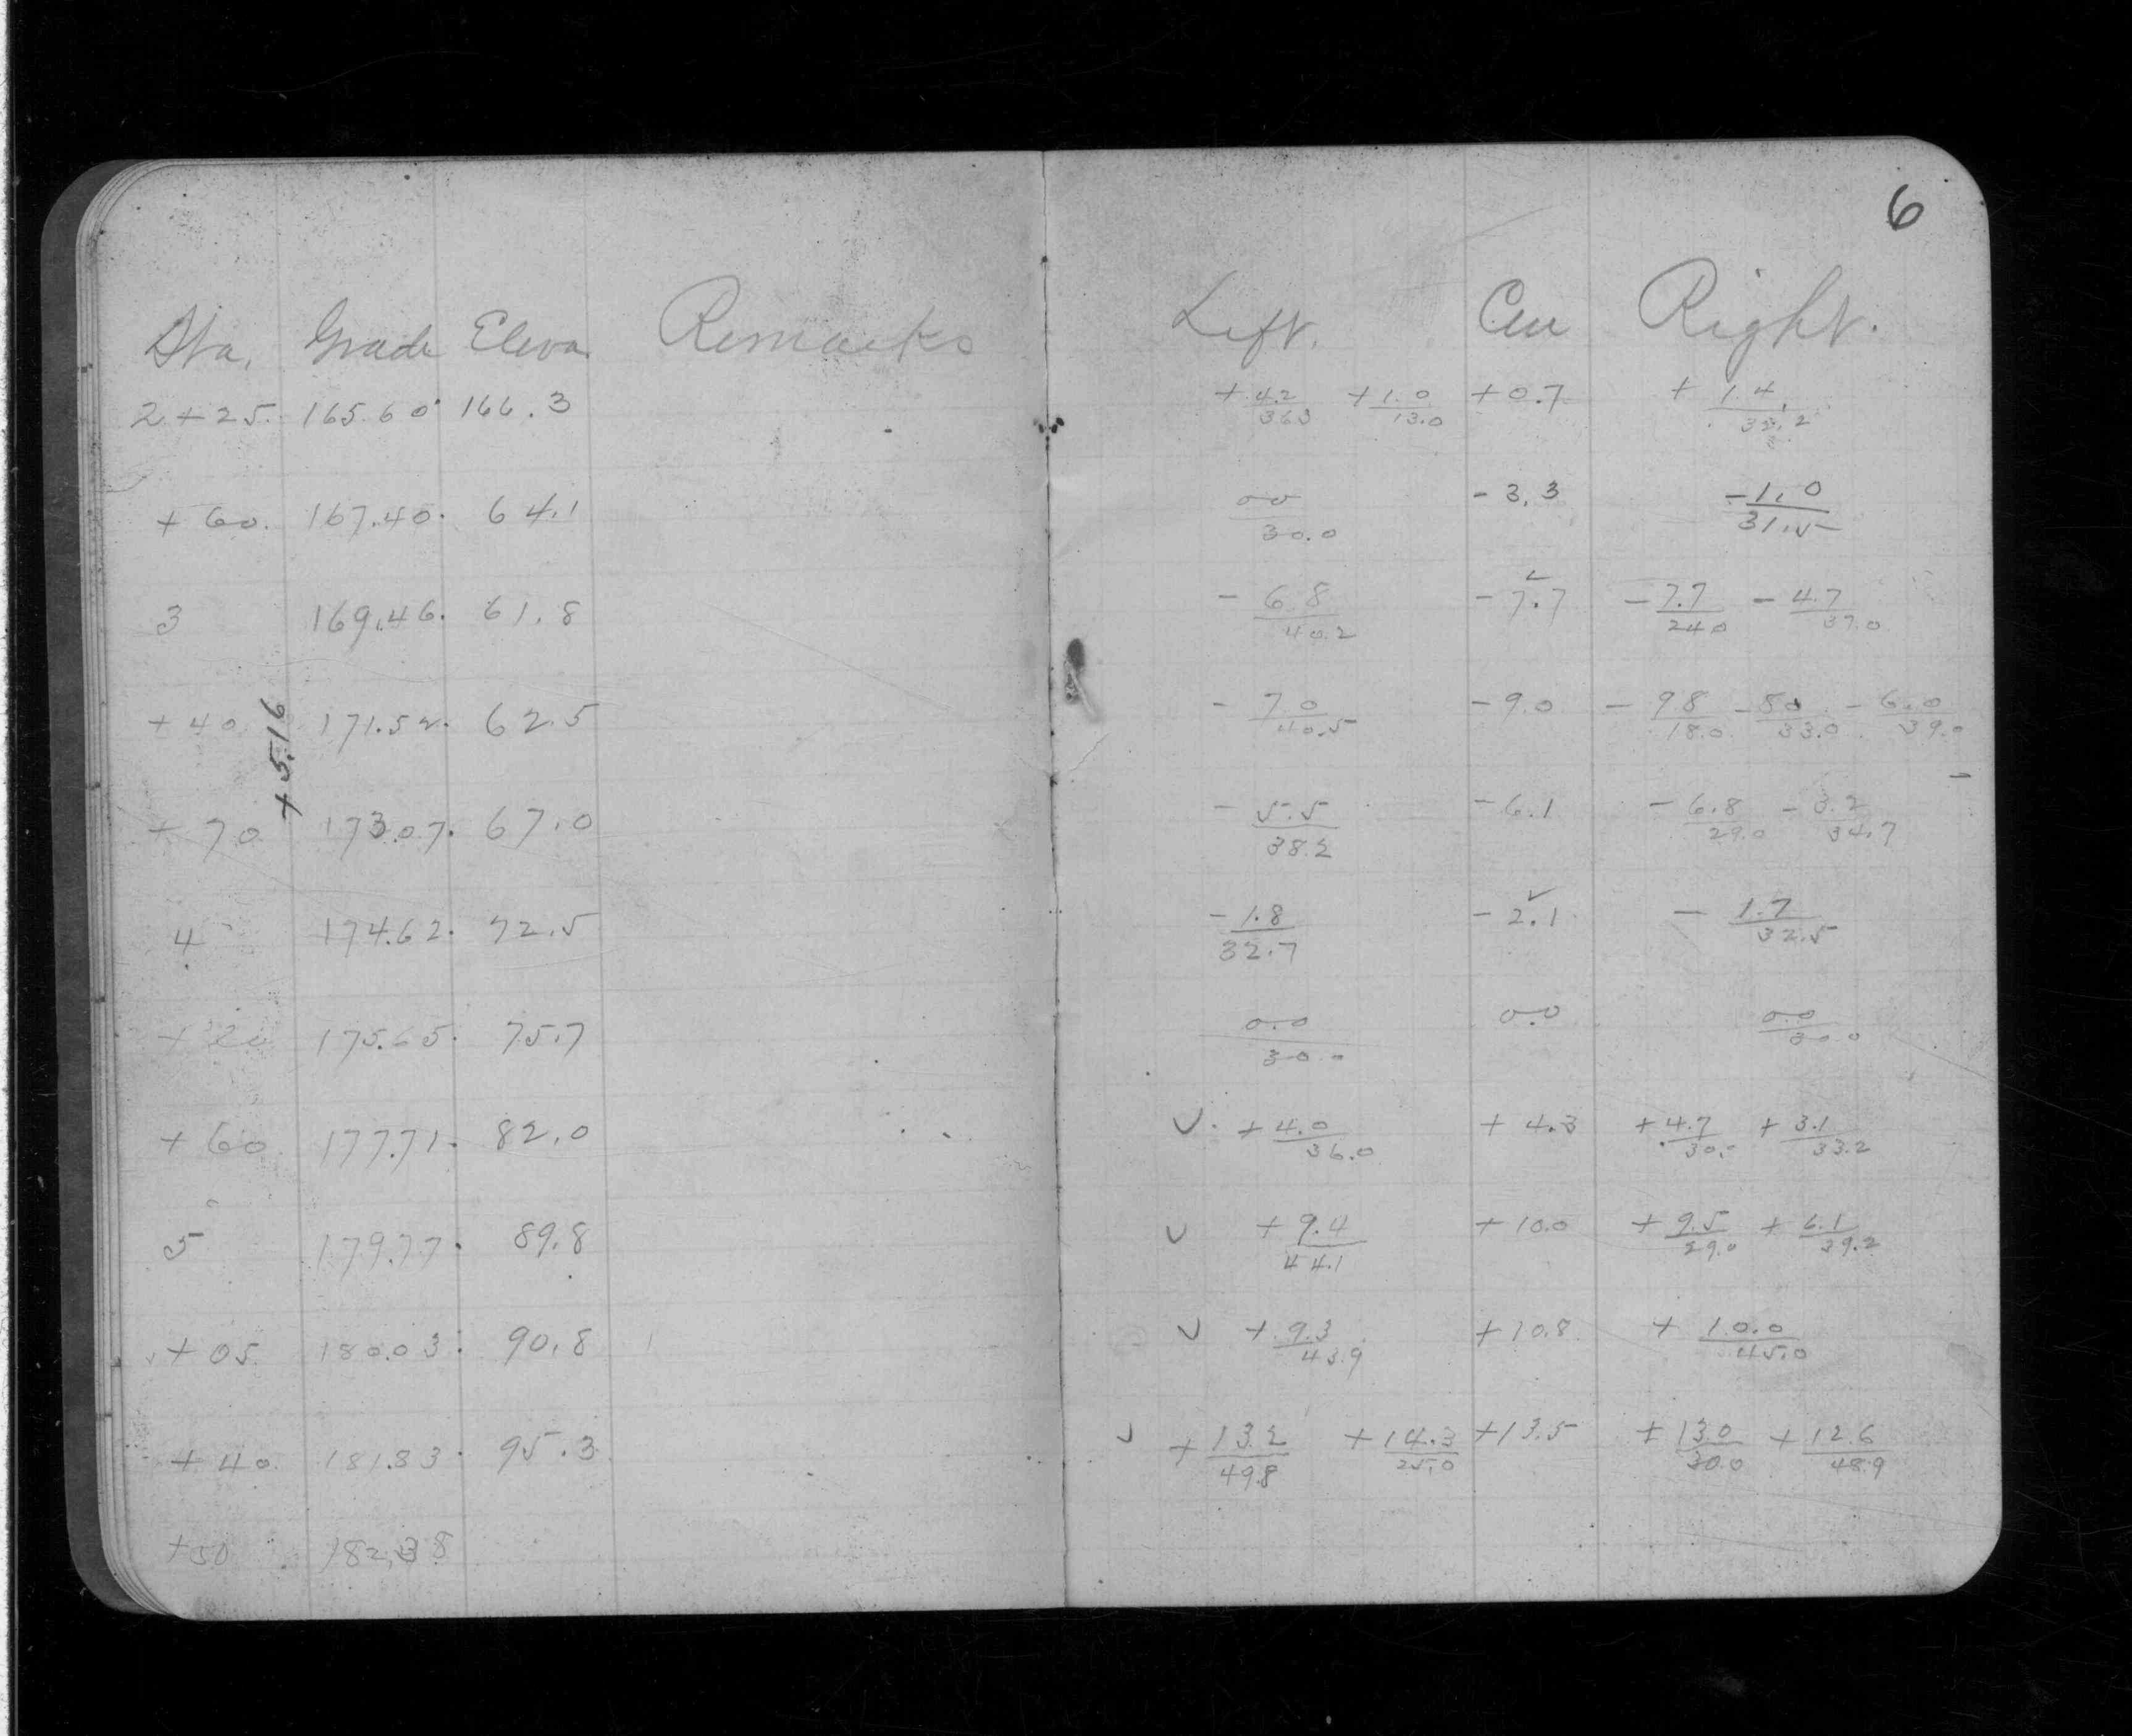 6
Sta. Grade Eleva. Remarks Left. Cen Right.
2+25. 165.60 166.3 + 4.2/36.3 + 1.0/13.0 +0.7 + 1.4/32.2
+60. 167.40. 64.1 0.0/30.0 -3.3 -1.0/31.5
3 169.46. 61.8 - 6.8/40.2 -7.7 - 7.7/24.0 - 4.7/37.0
+40 171.52. 62.5 - 7.0/40.5 -9.0 - 9.8/18.0 - 8.0/33.0 - 6.0/39.0
+5.16
+70 173.07. 67.0 - 5.5/38.2 -6.1 - 6.8/29.0 - 3.2/34.7
4 174.62. 72.5 - 1.8/32.7 -2.1 - 1.7/32.5
+20 175.65. 75.7 0.0/30.0 0.0 0.0/30.0
+60 177.71. 82.0 ✓ + 4.0/36.0 +4.3 + 4.7/30.- + 3.1/33.2
5 179.77. 89.8 ✓ + 9.4/44.1 +10.0 + 9.5/29.0 + 6.1/39.2
+05 180.03. 90.8 ✓ + 9.3/43.9 +10.8 + 10.0/45.0
+40 181.83. 95.3 ✓ + 13.2/49.8 + 14.3/25.0 +13.5 + 13.0/30.0 + 12.6/48.9
+50 182.38